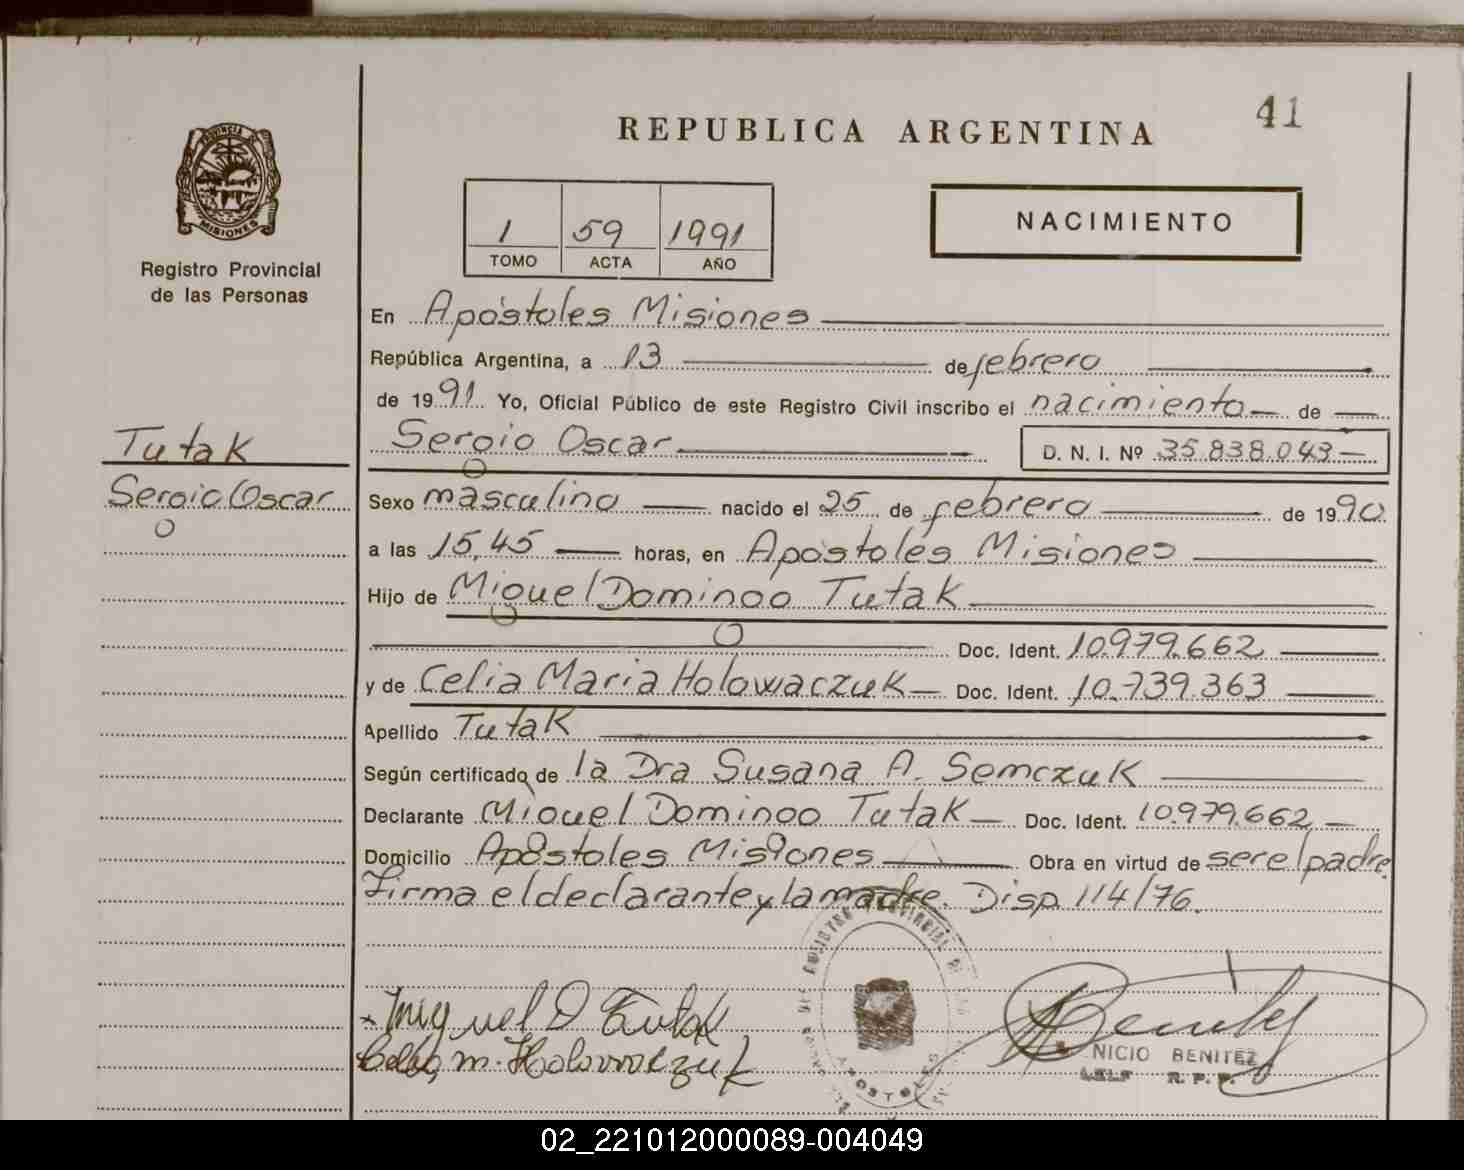 41
REPUBLICA ARGENTINA
PROVINCIA DE
MISIONES
Registro Provincial
de las Personas
1 59 1991
TOMO ACTA AÑO
NACIMIENTO
En Apóstoles Misiones
República Argentina, a 13 de febrero
de 1991 Yo, Oficial Público de este Registro Civil inscribo el nacimiento de
Sergio Oscar D. N. I. Nº 35.838.043
Tutak
Sergio Oscar
Sexo masculino nacido el 25 de febrero de 1990
a las 15,45 horas, en Apóstoles Misiones
Hijo de Miguel Domingo Tutak
Doc. Ident. 10.979.662
y de Celia Maria Holowaczuk Doc. Ident. 10.739.363
Apellido Tutak
Según certificado de la Dra Susana A. Semczuk
Declarante Miguel Domingo Tutak Doc. Ident. 10.979.662
Domicilio Apóstoles Misiones Obra en virtud de ser el padre.
Firma el declarante y la madre. Disp. 114/76.
REGISTRO PROVINCIAL DE LAS
APOSTOLES
Miguel D Tutak
Celia M. Holowaczuk
NICIO BENITEZ
R. P. P.
02_221012000089-004049